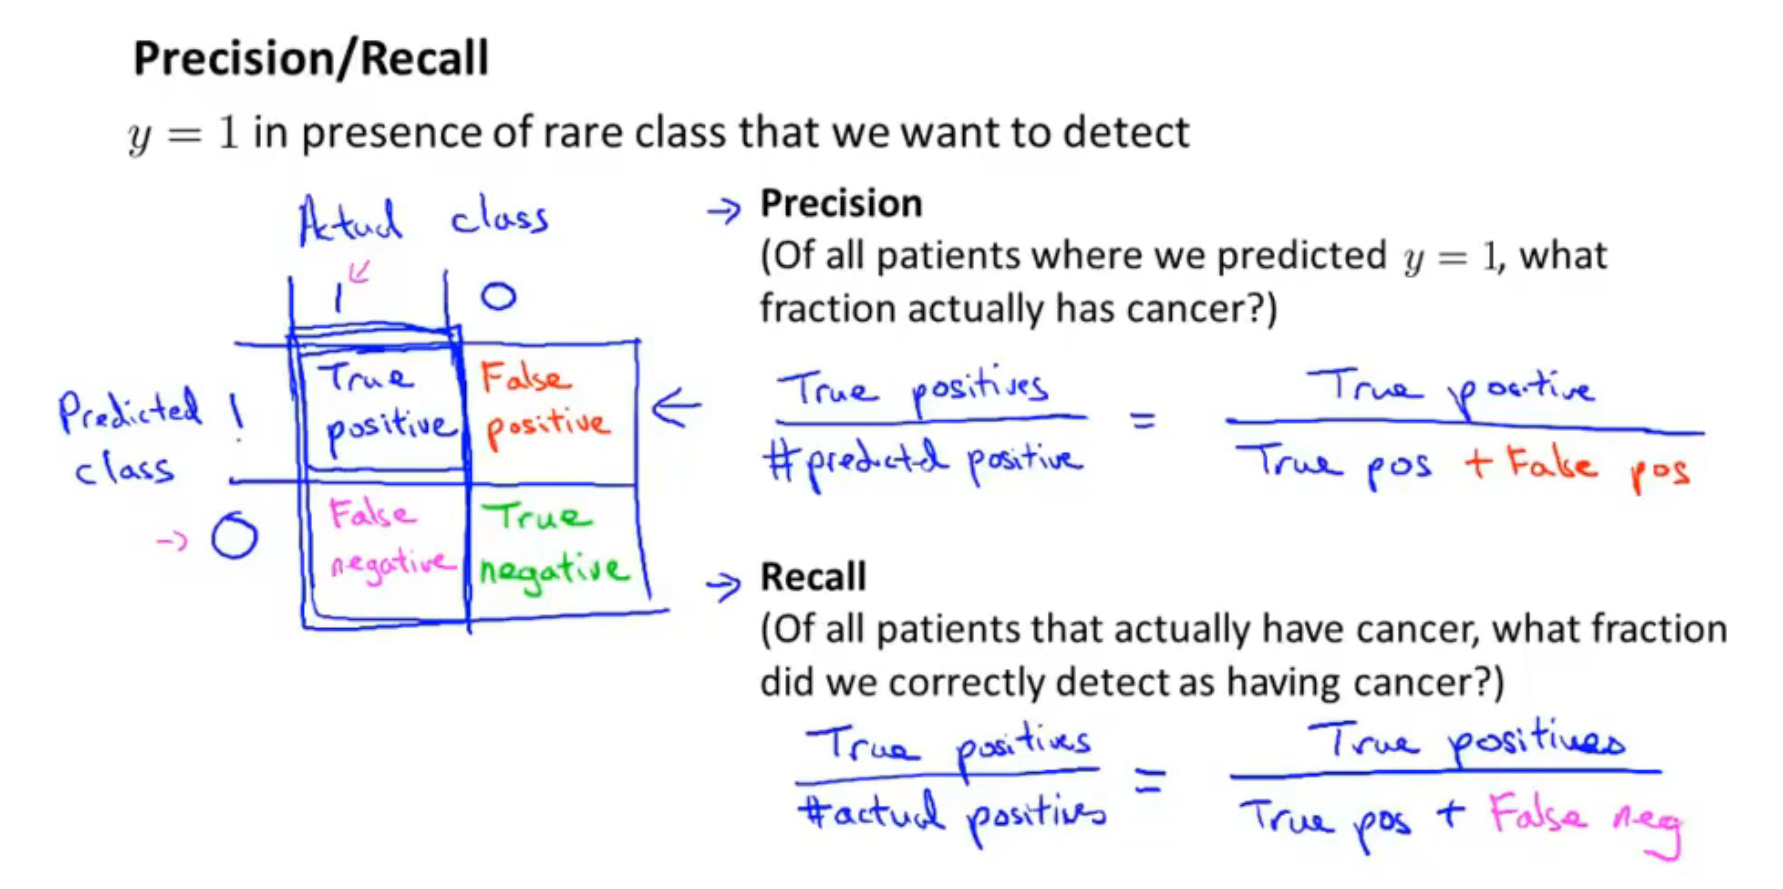 Precision/Recall
y = 1 in presence of rare class that we want to detect
Actual class
1 0
Predicted class
1
0
True positive
False positive
False negative
True negative
→ Precision
(Of all patients where we predicted y = 1, what
fraction actually has cancer?)
True positives / #predicted positive = True positive / True pos + False pos
→ Recall
(Of all patients that actually have cancer, what fraction
did we correctly detect as having cancer?)
True positives / #actual positives = True positives / True pos + False neg